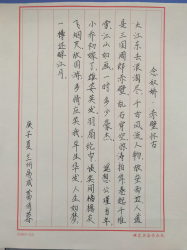 念奴娇·赤壁怀古
大江东去浪淘尽千古风流人物故垒西边人道
是三国周郎赤壁乱石穿空惊涛拍岸卷起千堆
雪江山如画一时多少豪杰 遥想公瑾当年
小乔初嫁了雄姿英发羽扇纶巾谈笑间樯橹灰
飞烟灭故国神游多情应笑我早生华发人生如梦
一樽还酹江月
庚子夏